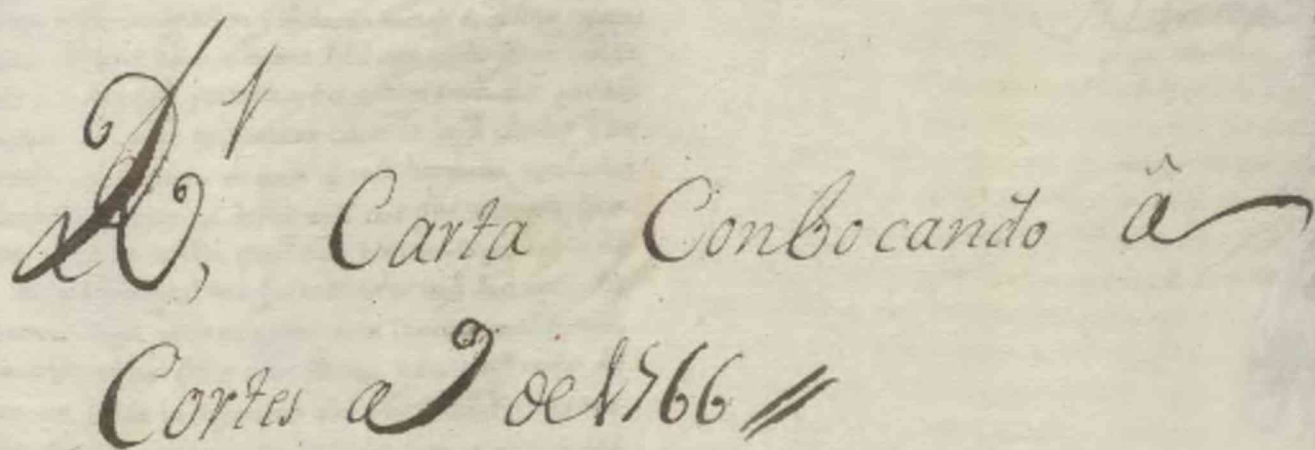 Rl, Carta Conbocando â
Cortes a⁹ de 1766 //